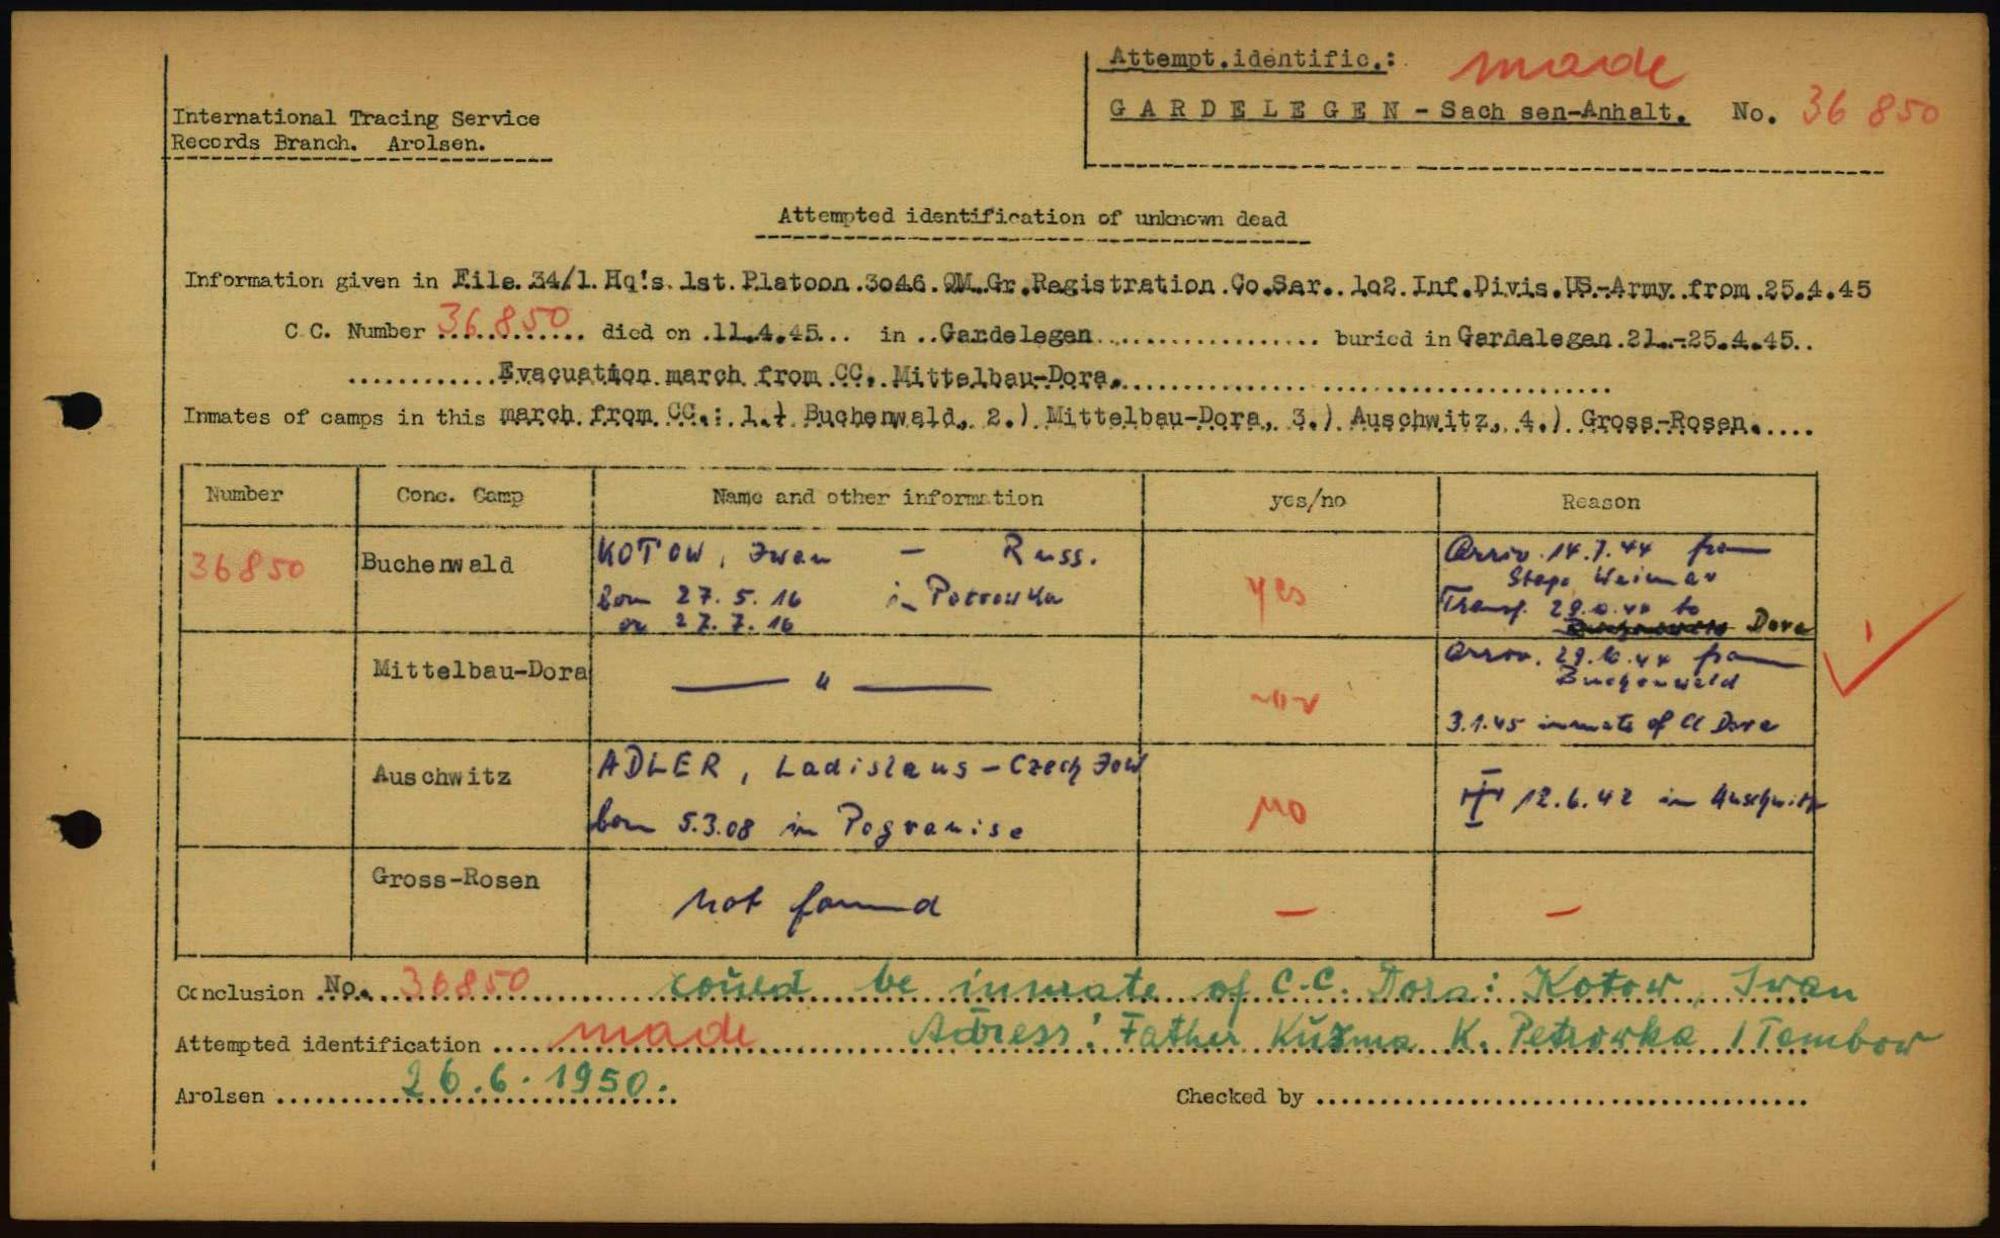 Attempt.identific.: made
GARDELEGEN - Sach sen-Anhalt. No. 36 850
International Tracing Service
Records Branch. Arolsen.
Attempted identification of unknown dead
Information given in File. 34/1. Hq's. 1st. Platoon. 3046. QM. Gr. Registration. Co. Sar.. 1o2. Inf. Divis. US.-Army. from. 25.4.45
C.C. Number 36 850 died on .11.4.45... in ..Gardelegen.................. buried in Gardelegen. 21.-25.4.45..
............Evacuation march from CC. Mittelbau-Dora.
Inmates of camps in this march from CC.: 1.) Buchenwald, 2.) Mittelbau-Dora, 3.) Auschwitz, 4.) Gross-Rosen.....
Number Conc. Camp Name and other information yes/no Reason
36850 Buchenwald KOTOW, Iwan - Russ. yes Arriv. 14.7.44 from
Stapo Weimar
born 27.5.16 in Petrowka
or 27.7.16
Transf. to
Dora
Mittelbau-Dora — " — Arriv. 29.10.44 from
Buchenwald
3.1.45 inmate of CC Dora
Auschwitz ADLER, Ladislaus - Czech Jew
born 5.3.08 in no 12.6.42 in Auschwitz
Gross-Rosen not found — —
Conclusion No. 36850 could be inmate of C.C. Dora: Kotow, Iwan
Attempted identification made Adress: Father Kusma K. Petrowka / Tambow
Arolsen 26.6.1950.
Checked by ........................................